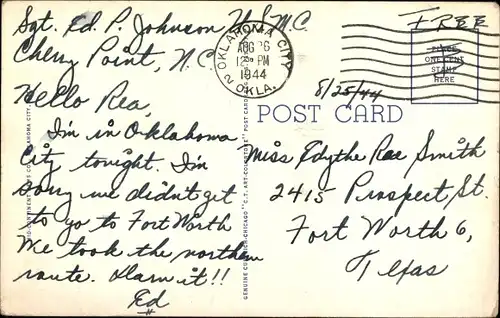 Sgt. Ed. P. Johnson U.S.M.C.
Cherry Point, N.C.
OKLAHOMA CITY
AUG 26
12 PM
1944
2 OKLA.
FREE
PLACE
ONE CENT
STAMP
HERE
8/25/44
POST CARD
Hello Rea,
I'm in Oklahoma
City tonight. I'm
sorry we didn't get
to go to Fort Worth
We took the northern
route. Darn it!!
Ed
GENUINE CURTEICH-CHICAGO "C.T. ART-COLORTONE" POST CARD
Miss Edythe Rae Smith
2415 Prospect St.
Fort Worth 6,
Texas